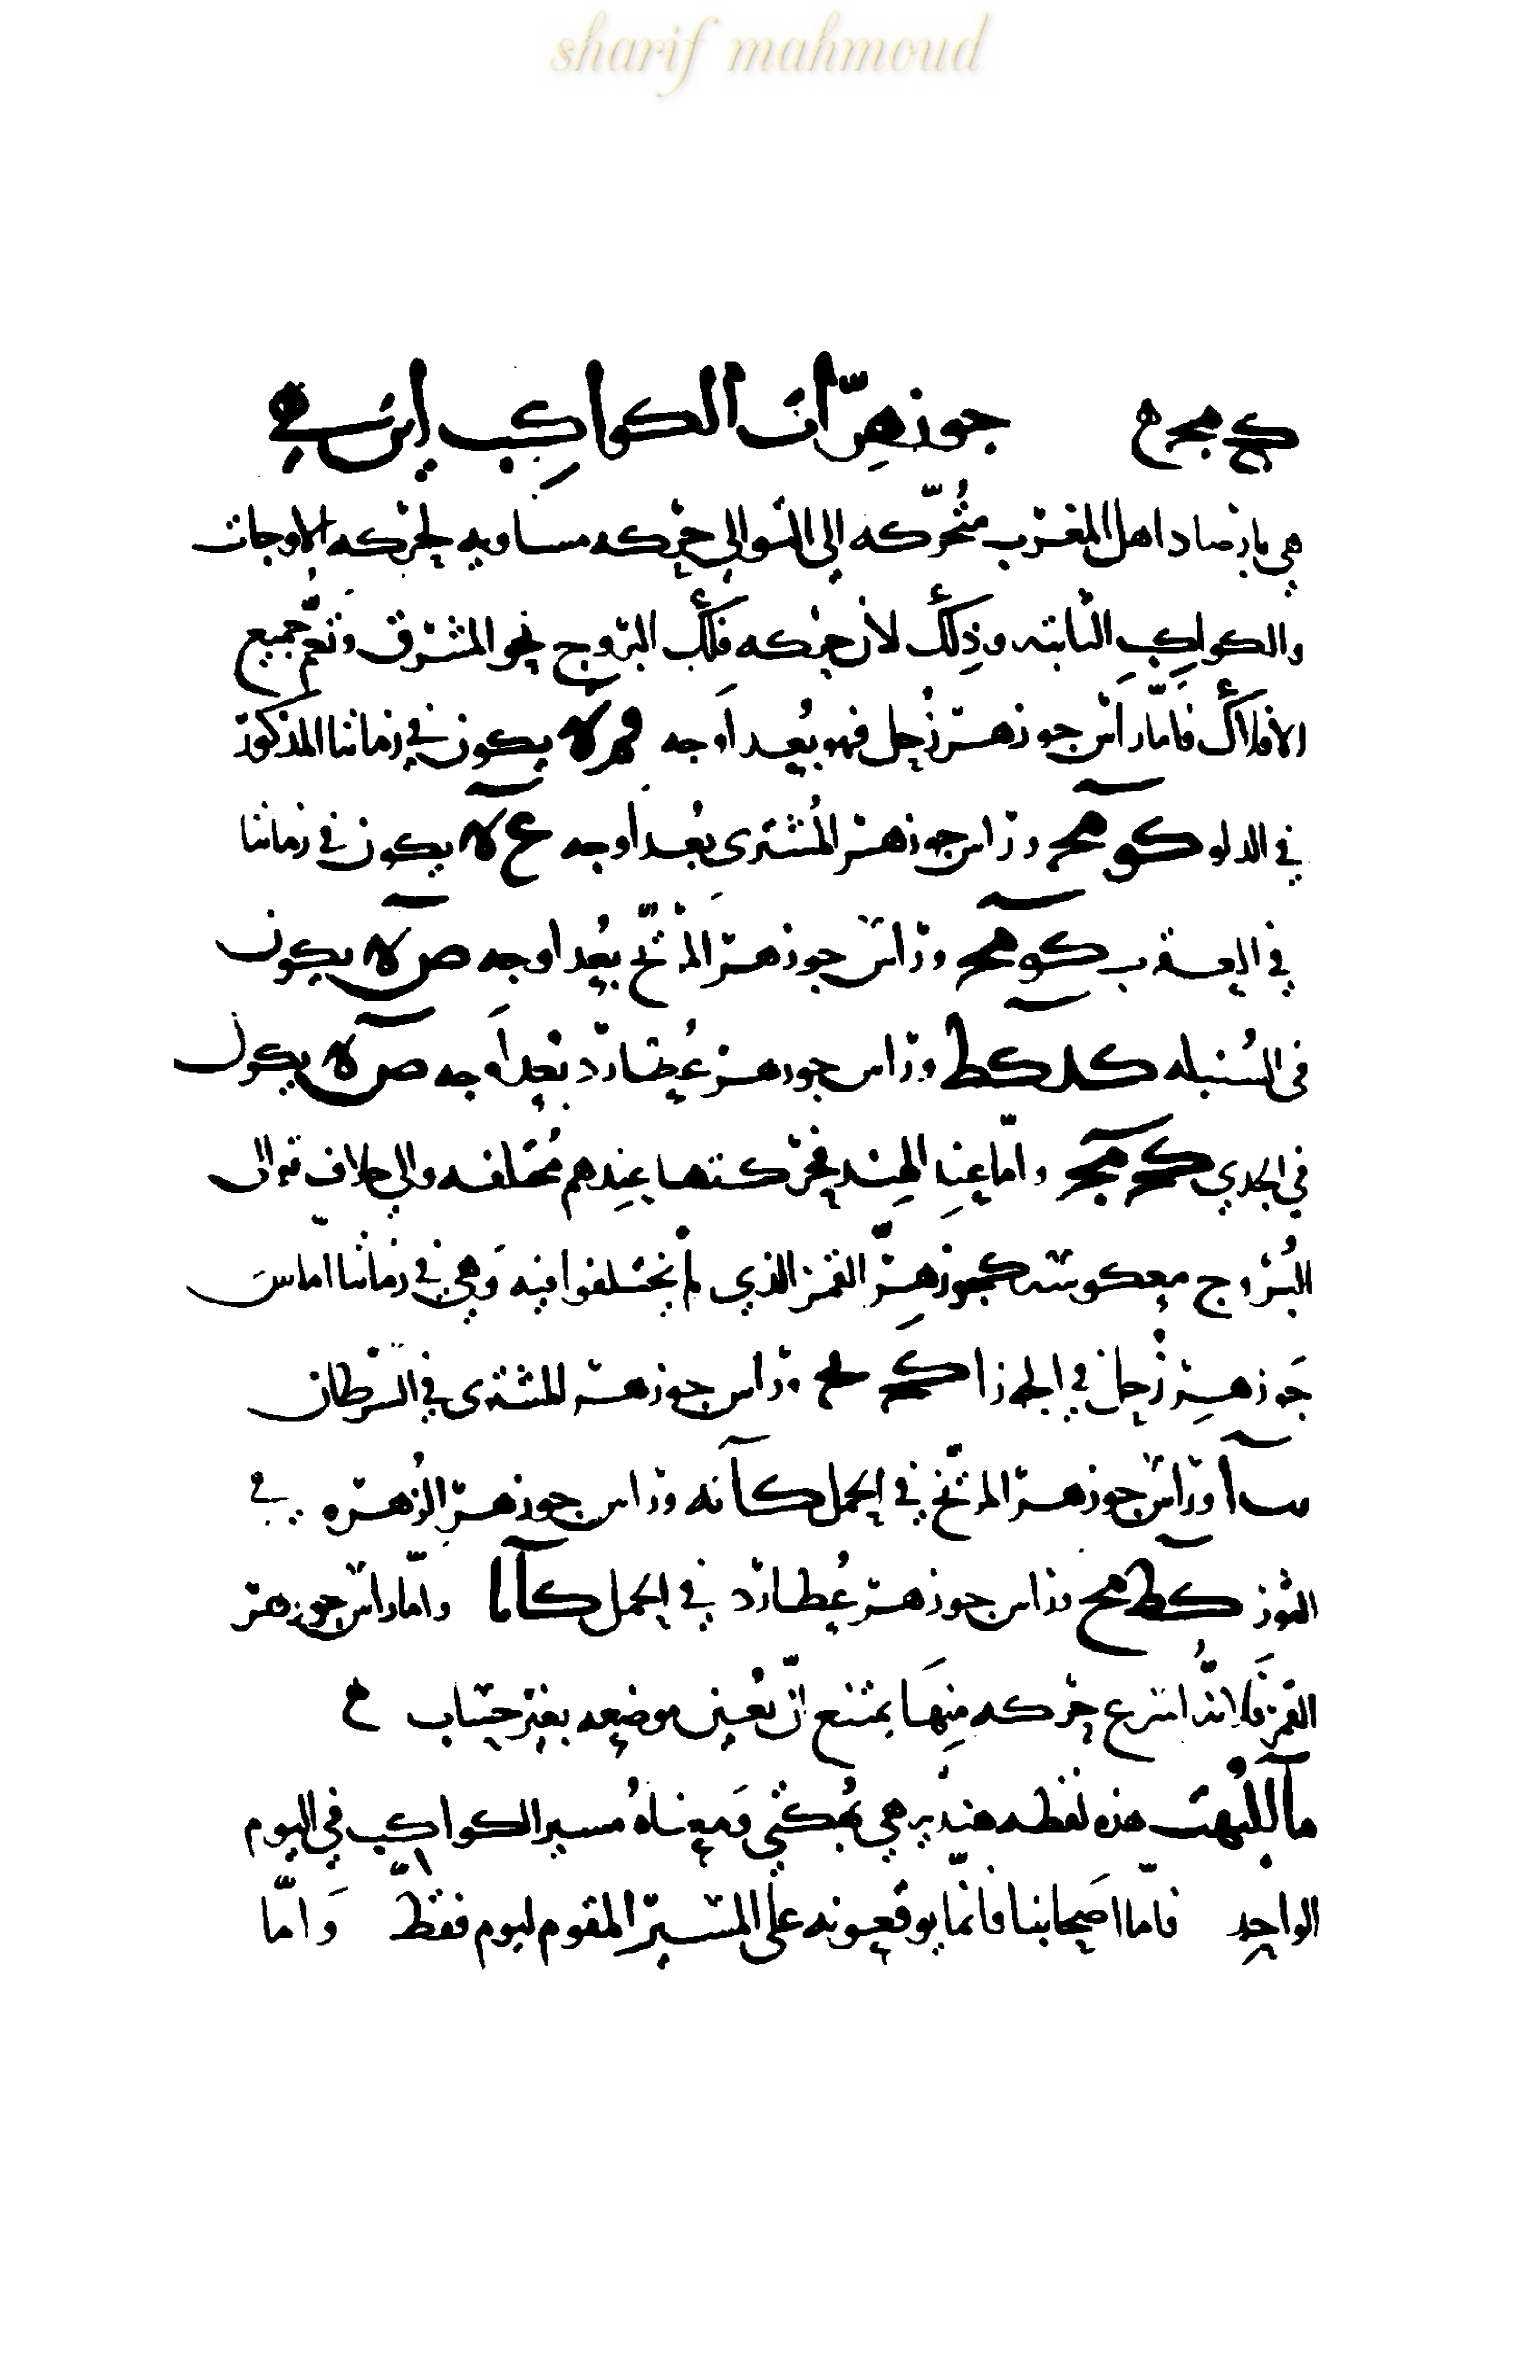 sharif mahmoud
جوزهرّات الكواكب اين هي
هي بارصاد اهل المغرب متحرّكه الى التوالي حركه مساويه لحركه الاوجات
والكواكبِ الثابته وذِلكَ لأن حركه فلَك البروج نحو المشرق وتعمّ جميع
الافلاكَ فامّا راس جوزهر زُحل فهو بُعد اَوجه يكون في زماننا المذكور
في الدلو وراس جوزهر المُشترى بُعد اَوجه يكون في زماننا
في العقرب وراس جوزهر المرّيخ بُعد اوجه ص يكون
في السُنبله كد كط وراس جوزهر عُطارد بعد اَوجه ص يكون
في الجدي وامّا عند الهند فحركتها عندهم مُختلفه والى خلاف توالى
البُروج معكوسه كجوزهرّ القمر الذي لم يختلفوا فيه وَهي في زماننا اما راس
جَوزهر زُحل في الجوزا وراس جوزهر المشترى في السّرطان
وراس جوزهر المرّيخ في الحمل كا نه وراس جوزهر الزُهره في
الثور كط مح وراس جوزهر عُطارد في الحمل كا ما وامّا راس جوزهر
القمر فَلانّهُ اسرع حركه مِنهَا يمتنع انّ نُعين موضعه بغير حسَاب
ما البُهت هذه لفظه هنديه هي بُهكتي وَمعناهُ مسير الكواكب في اليوم
الواحد فامّا اصَحابنا فانمّا يوقعونه على المسير المقوم ليوم فقطّ وَامّا